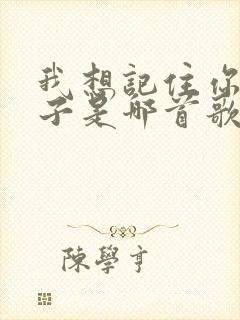 我想記住你
子是哪首歌
陳學亨